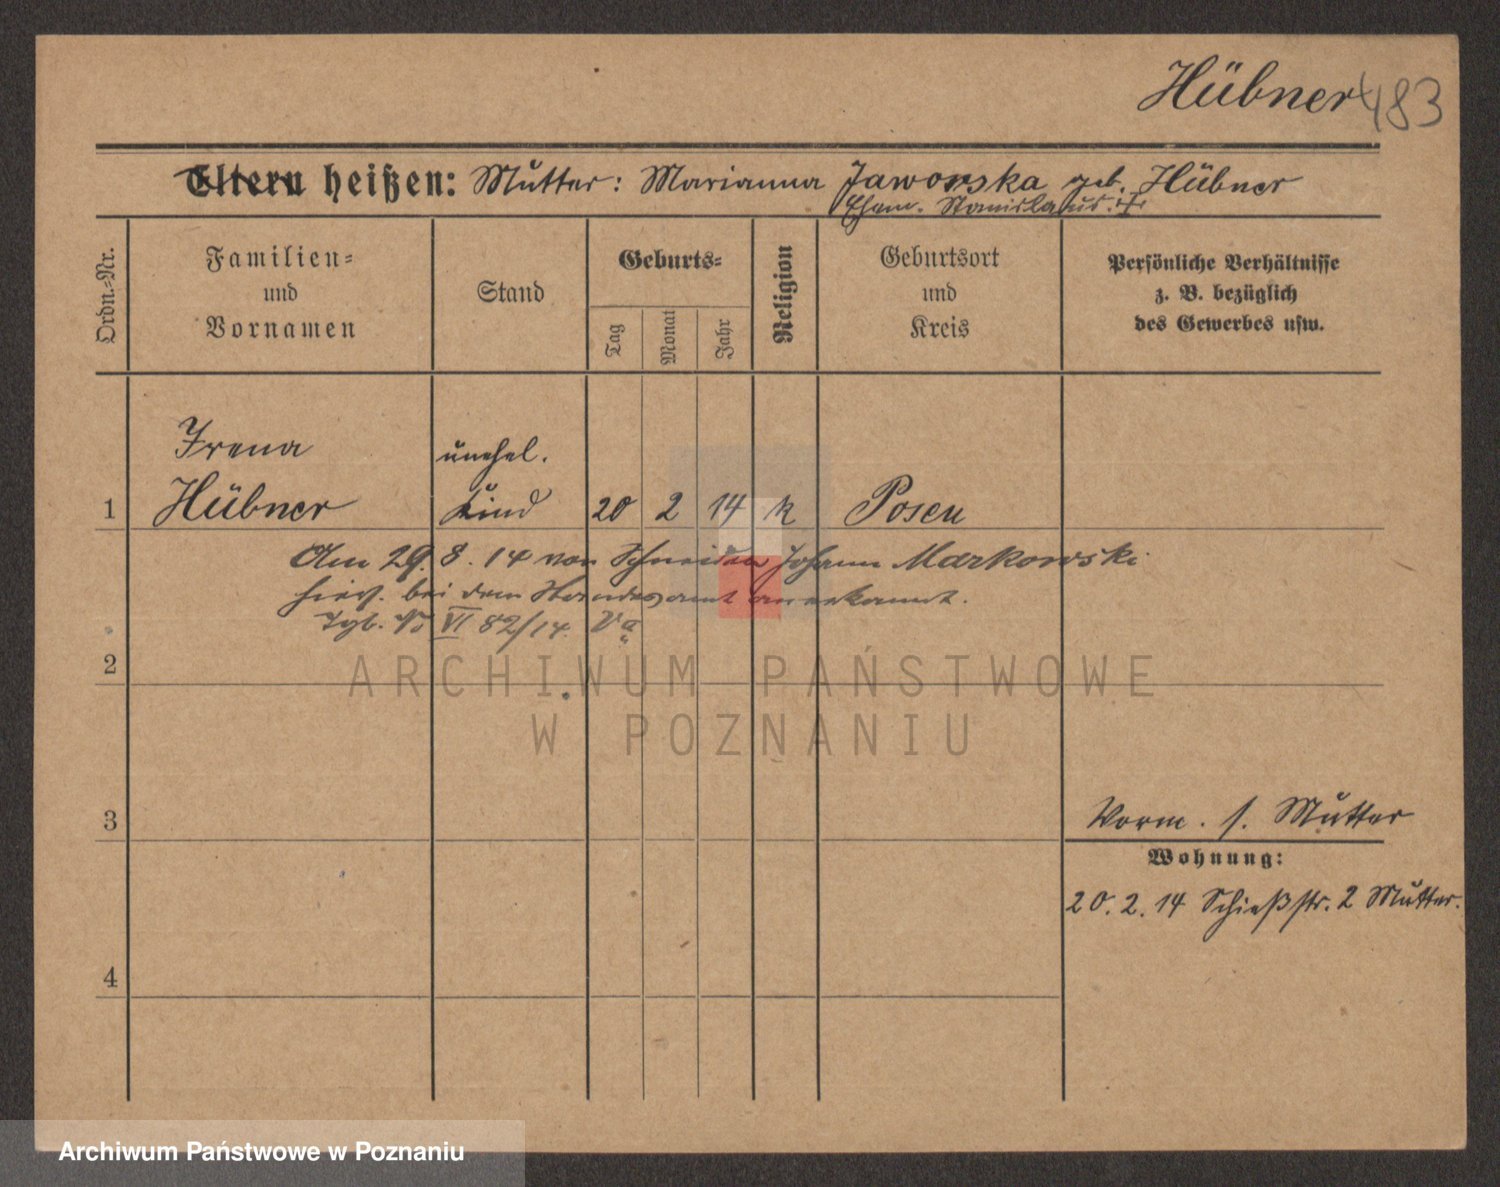 Hübner 483
Eltern heißen: Mutter: Marianna Jaworska geb. Hübner
Ehem. Stanislaus. +
Ordn.-Nr.
Familien-
und
Vornamen
Stand
Geburts-
Tag
Monat
Jahr
Religion
Geburtsort
und
Kreis
Persönliche Verhältnisse
z. B. bezüglich
des Gewerbes usw.
Irena unehel.
1 Hübner Kind 20 2 14 k Posen
Am 29. 8. 14 von Schneider Johann Markowski
hier. bei dem Standesamt anerkannt.
Tgb. No VI 82/14.
2
ARCHIWUM PAŃSTWOWE
W POZNANIU
3
Vorm. s. Mutter
Wohnung:
20. 2. 14 Schießstr. 2 Mutter.
4
Archiwum Państwowe w Poznaniu